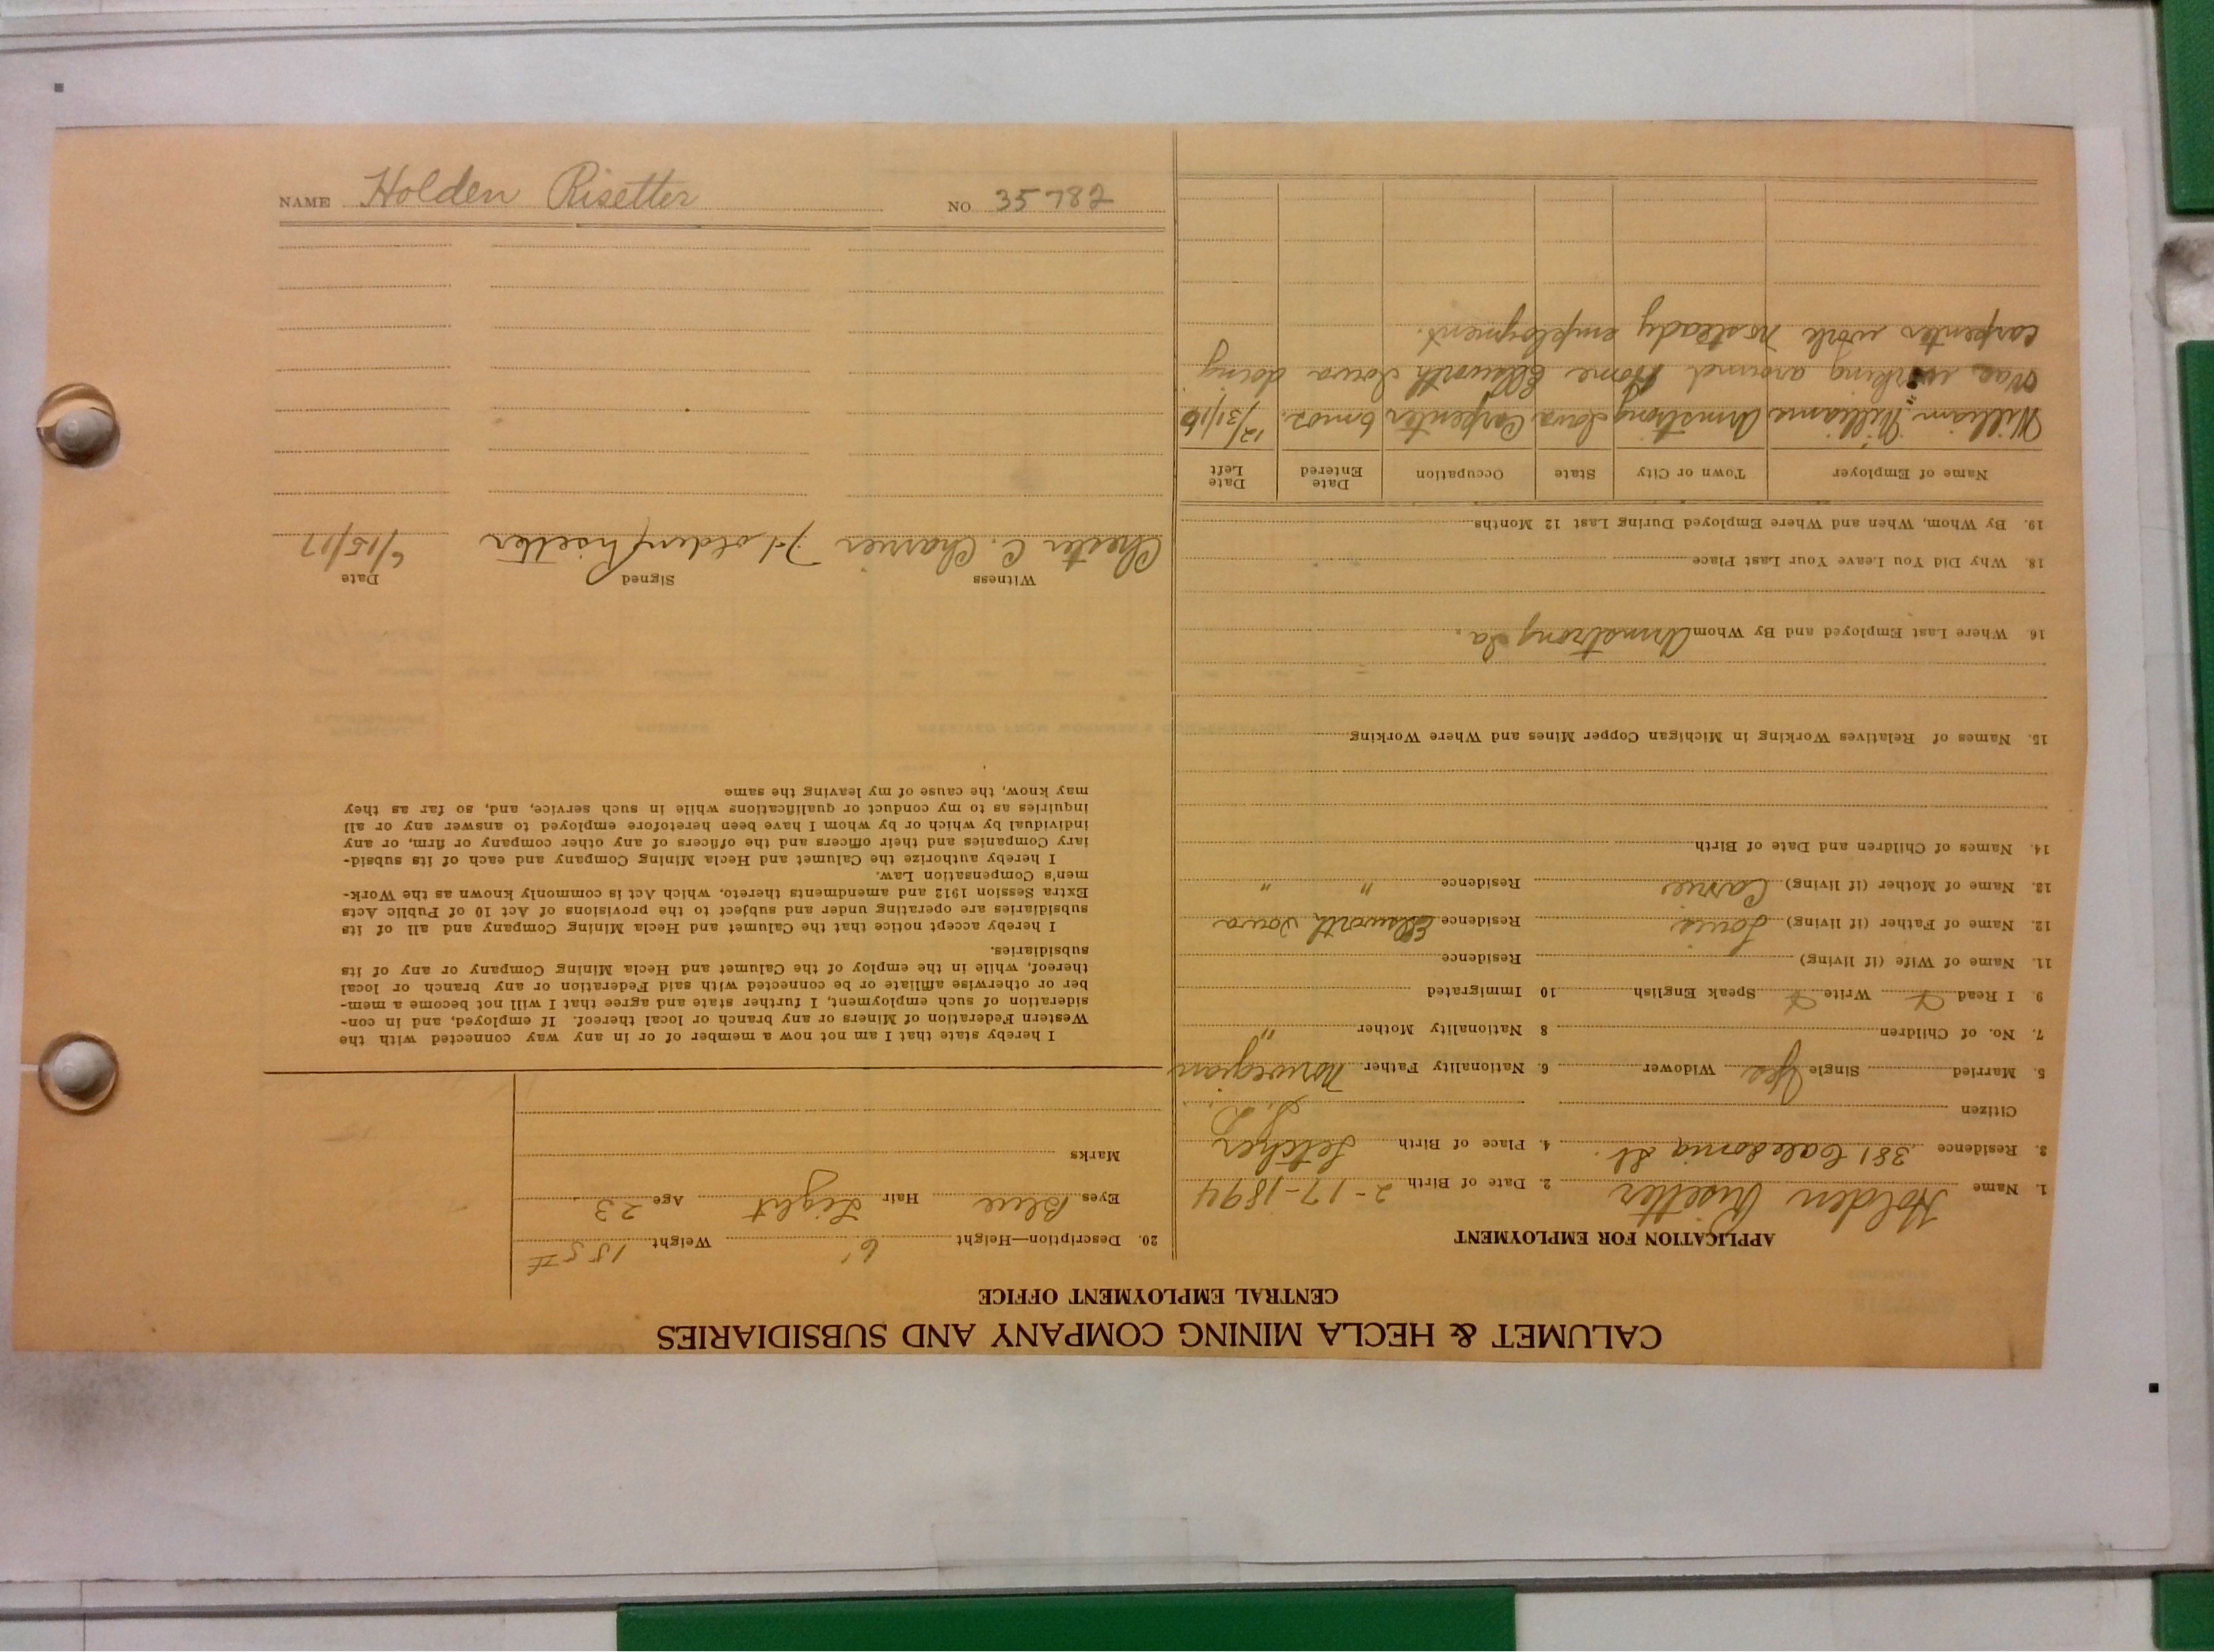 CALUMET & HECLA MINING COMPANY AND SUBSIDIARIES
CENTRAL EMPLOYMENT OFFICE
APPLICATION FOR EMPLOYMENT
1. Name Holden Risetter 2. Date of Birth 2-17-1894
3. Residence 381 Caledonia St. 4. Place of Birth Letcher
Citizen S.D.
5. Married Single Yes Widower 6. Nationality Father Norwegian
7. No. of Children 8 Nationality Mother "
9 I Read Write Speak English 10 Immigrated
11. Name of Wife (if living) Residence
12. Name of Father (if living) Louis Residence Ellsworth Iowa
13. Name of Mother (if living) Carrie Residence " "
14. Names of Children and Date of Birth
15. Names of Relatives Working in Michigan Copper Mines and Where Working
16. Where Last Employed and By Whom Armstrong Ia.
18. Why Did You Leave Your Last Place
19. By Whom, When and Where Employed During Last 12 Months
Name of Employer Town or City State Occupation Date Entered Date Left
William Williams Armstrong Iowa Carpenter 6 mos. 12/31/16
Was working around Home Ellsworth Iowa doing
carpenter work no steady employment.
20. Description—Height 6' Weight 155#
Eyes Blue Hair Light Age 23
Marks
I hereby state that I am not now a member of or in any way connected with the
Western Federation of Miners or any branch or local thereof. If employed, and in con-
sideration of such employment, I further state and agree that I will not become a mem-
ber or otherwise affiliate or be connected with said Federation or any branch or local
thereof, while in the employ of the Calumet and Hecla Mining Company or any of its
subsidiaries.
I hereby accept notice that the Calumet and Hecla Mining Company and all of its
subsidiaries are operating under and subject to the provisions of Act 10 of Public Acts
Extra Session 1912 and amendments thereto, which Act is commonly known as the Work-
men's Compensation Law.
I hereby authorize the Calumet and Hecla Mining Company and each of its subsid-
iary Companies and their officers and the officers of any other company or firm, or any
individual by which or by whom I have been heretofore employed to answer any or all
inquiries as to my conduct or qualifications while in such service, and, so far as they
may know, the cause of my leaving the same
Witness Signed Date
Chester C. Charrier Holden Risetter 6/15/17
NAME Holden Risetter NO 35782